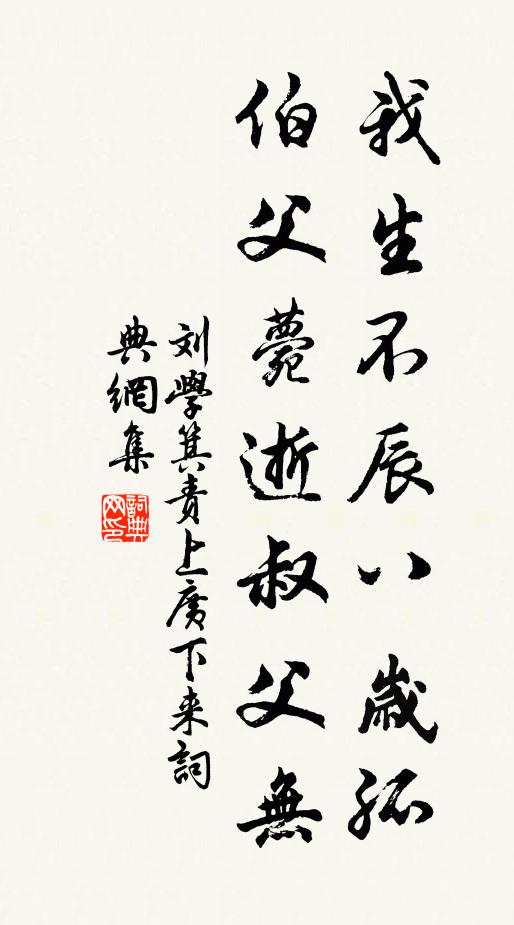 我生不辰八歲孤
伯父薨逝叔父無
刘學箕責上廣下来詞
典網集
詞典网印